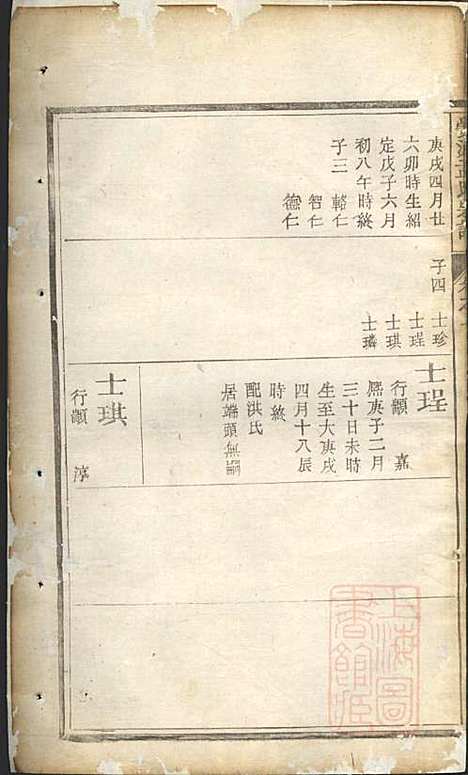 庚戌四月廿
六卯時生紹
定戊子六月
初八午時終
子三
輅仁
智仁
德仁
子四
士珍
士珵
士琪
士璘
士珵
行顓
嘉
熈庚子二月
三十日未時
生至大庚戌
四月十八辰
時終
配洪氏
居端頭無嗣
士琪
行顓
淳
上海圖
書館